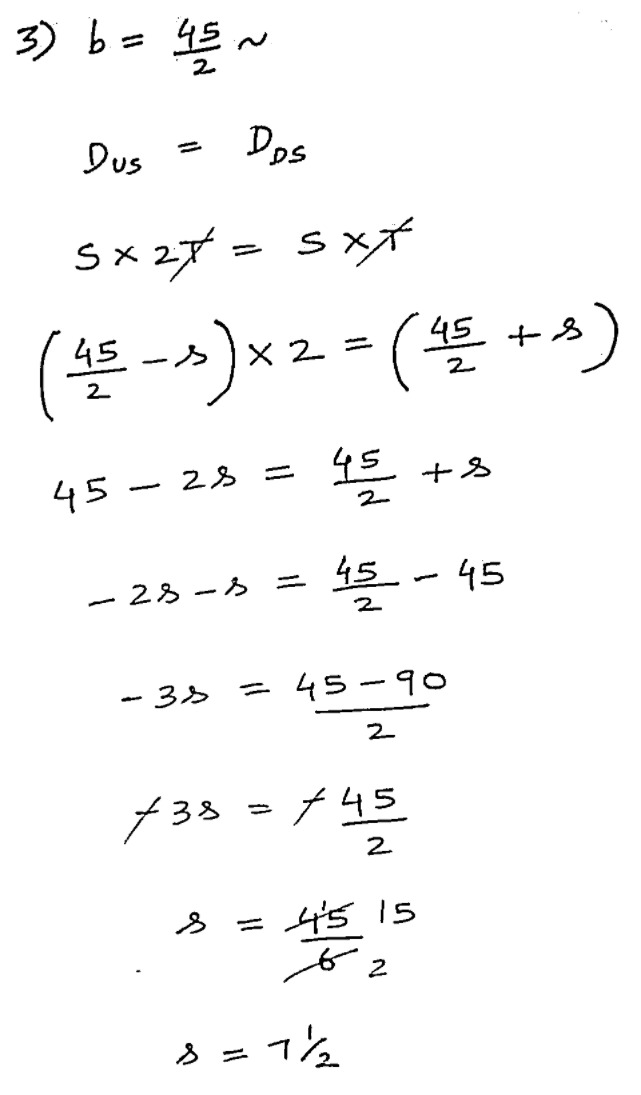 3) b = 45/2 ~
D_US = D_DS
S × 2T = S × T
(45/2 - s) × 2 = (45/2 + s)
45 - 2s = 45/2 + s
- 2s - s = 45/2 - 45
- 3s = (45 - 90)/2
- 3s = - 45/2
s = 45/6 15/2
s = 7 1/2